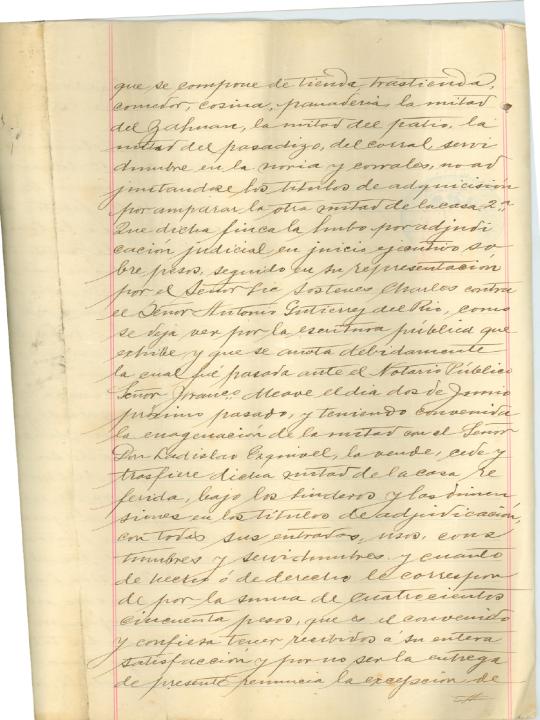 que se compone de tienda, trastienda,
comedor, cosina, panaderia, la mitad
del Zahuan, la mitad del patio, la
mitad del pasadizo, del corral servi
dumbre en la noria y corrales, no ad
juntandose los títulos de adquicisión
por amparar la otra mitad de la casa. 2ª
Que dicha finca la hubo por adjudi
cación judicial en juicio ejecutivo so
bre pesos, seguido en su representación
por el Señor Lic Sostenes Charles contra
el Señor Antonio Gutierrez del Rio, como
se deja ver por la escritura pública que
exhibe y que se anota debidamente
la cual fué pasada ante el Notario Público
Señor Meave el dia dos de Junio
próximo pasado, y teniendo convenida
la enagenación de la mitad con el Señor
Don Ladislao Esquivel, la vende, cede y
trasfiere dicha mitad de la casa re
ferida, bajo los linderos y las dimen
siones en los títulos de adjudicación,
con todas sus entradas, usos, cons
tumbres y servidumbres y cuanto
de hecho ó de derecho le correspon
de por la suma de cuatrocientos
cincuenta pesos, que es el convenido
y confiesa tener recibidos á su entera
satisfacción y por no ser la entrega
de presente renuncia la excepsión de